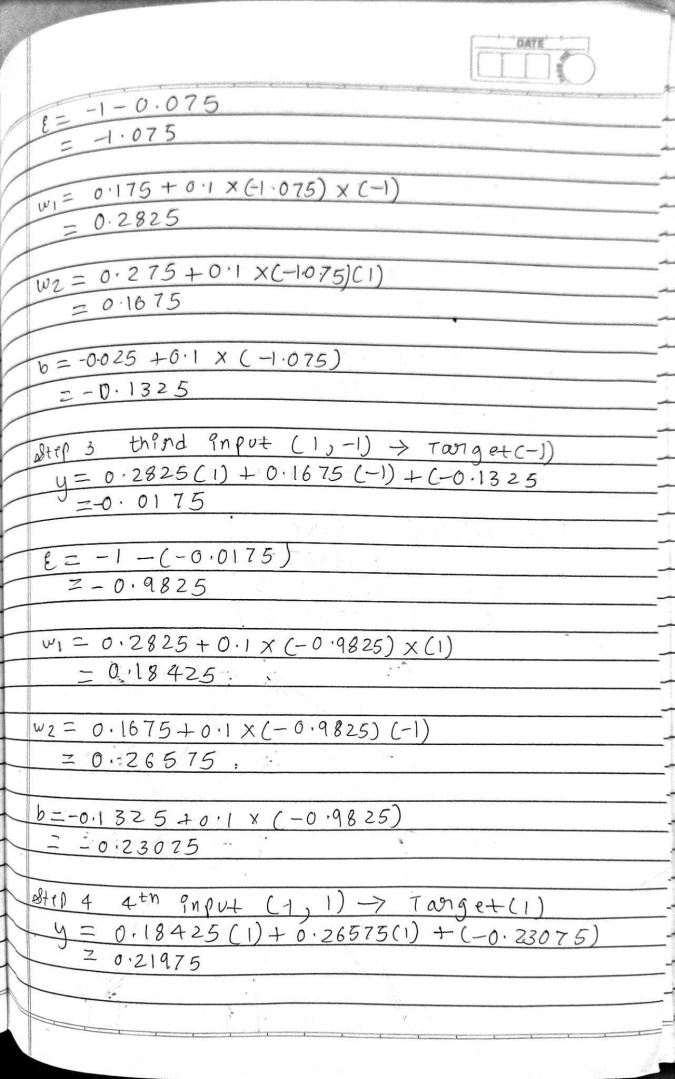 DATE
ε = -1 - 0.075
= -1.075
w1 = 0.175 + 0.1 × (-1.075) × (-1)
= 0.2825
w2 = 0.275 + 0.1 × (-1.075)(1)
= 0.1675
b = -0.025 + 0.1 × (-1.075)
= -0.1325
Step 3 third input (1, -1) → Target(-1)
y = 0.2825(1) + 0.1675(-1) + (-0.1325
= -0.0175
ε = -1 - (-0.0175)
= -0.9825
w1 = 0.2825 + 0.1 × (-0.9825) × (1)
= 0.18425
w2 = 0.1675 + 0.1 × (-0.9825)(-1)
= 0.26575
b = -0.1325 + 0.1 × (-0.9825)
= -0.23075
Step 4 4th input (1, 1) → Target(1)
y = 0.18425(1) + 0.26575(1) + (-0.23075)
= 0.21975